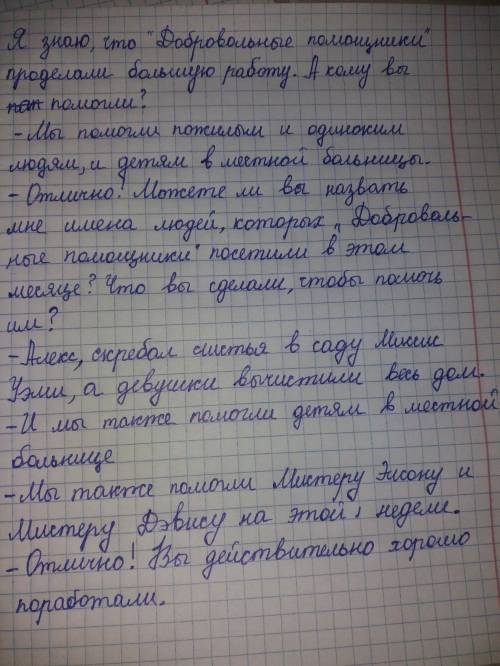 Я знаю, что "Добровольные помощники"
проделали большую работу. А кому вы
помогли?
- Мы помогли пожилым и одиноким
людям, и детям в местной больницы.
- Отлично! Можете ли вы назвать
мне имена людей, которых „Доброволь-
ные помощники" посетили в этом
месяце? Что вы сделали, чтобы помочь
им?
- Алекс, скребал листья в саду Миссис
Уэми, а девушки вычистили весь дом.
- И мы также помогли детям в местной
больнице
- Мы также помогли Мистеру Эисону и
Мистеру Дэвису на этой, недели.
- Отлично! Вы действительно хорошо
поработали.